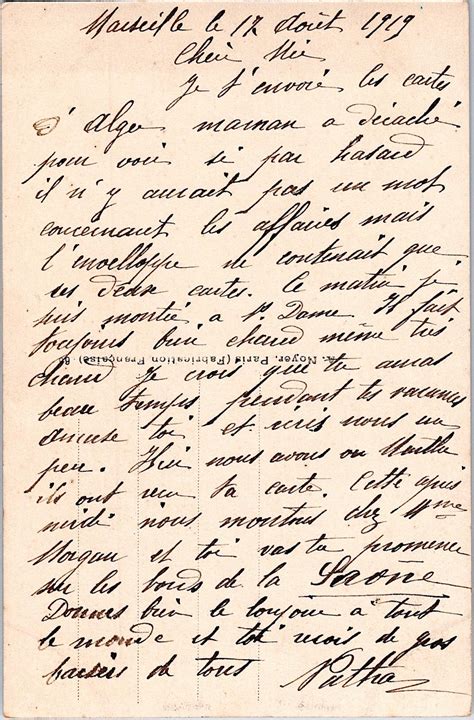 Marseille le 17 Août 1919
Chère Mie
Je t'envoie les cartes
d'Alger maman a décaché
pour voir si par hasard
il n'y aurait pas un mot
concernant les affaires mais
l'envelloppe ne contenait que
ses deux cartes. Ce matin je
suis montée a N. Dame. Il fait
toujours bien chaud même très
A. Noyer, Paris (Fabrication Française)
chaud Je crois que tu auras
beau temps pendant tes vacances
amuse toi et écris nous un
peu. Hier nous avons vu Marthe
ils ont reçu ta carte. Cette après
midi nous montons chez Mme
Morgan et toi vas tu promener
sur les bords de la Saône
Donnes bien le bonjour a tout
le monde et toi reçois de gros
baisers de tous Natha